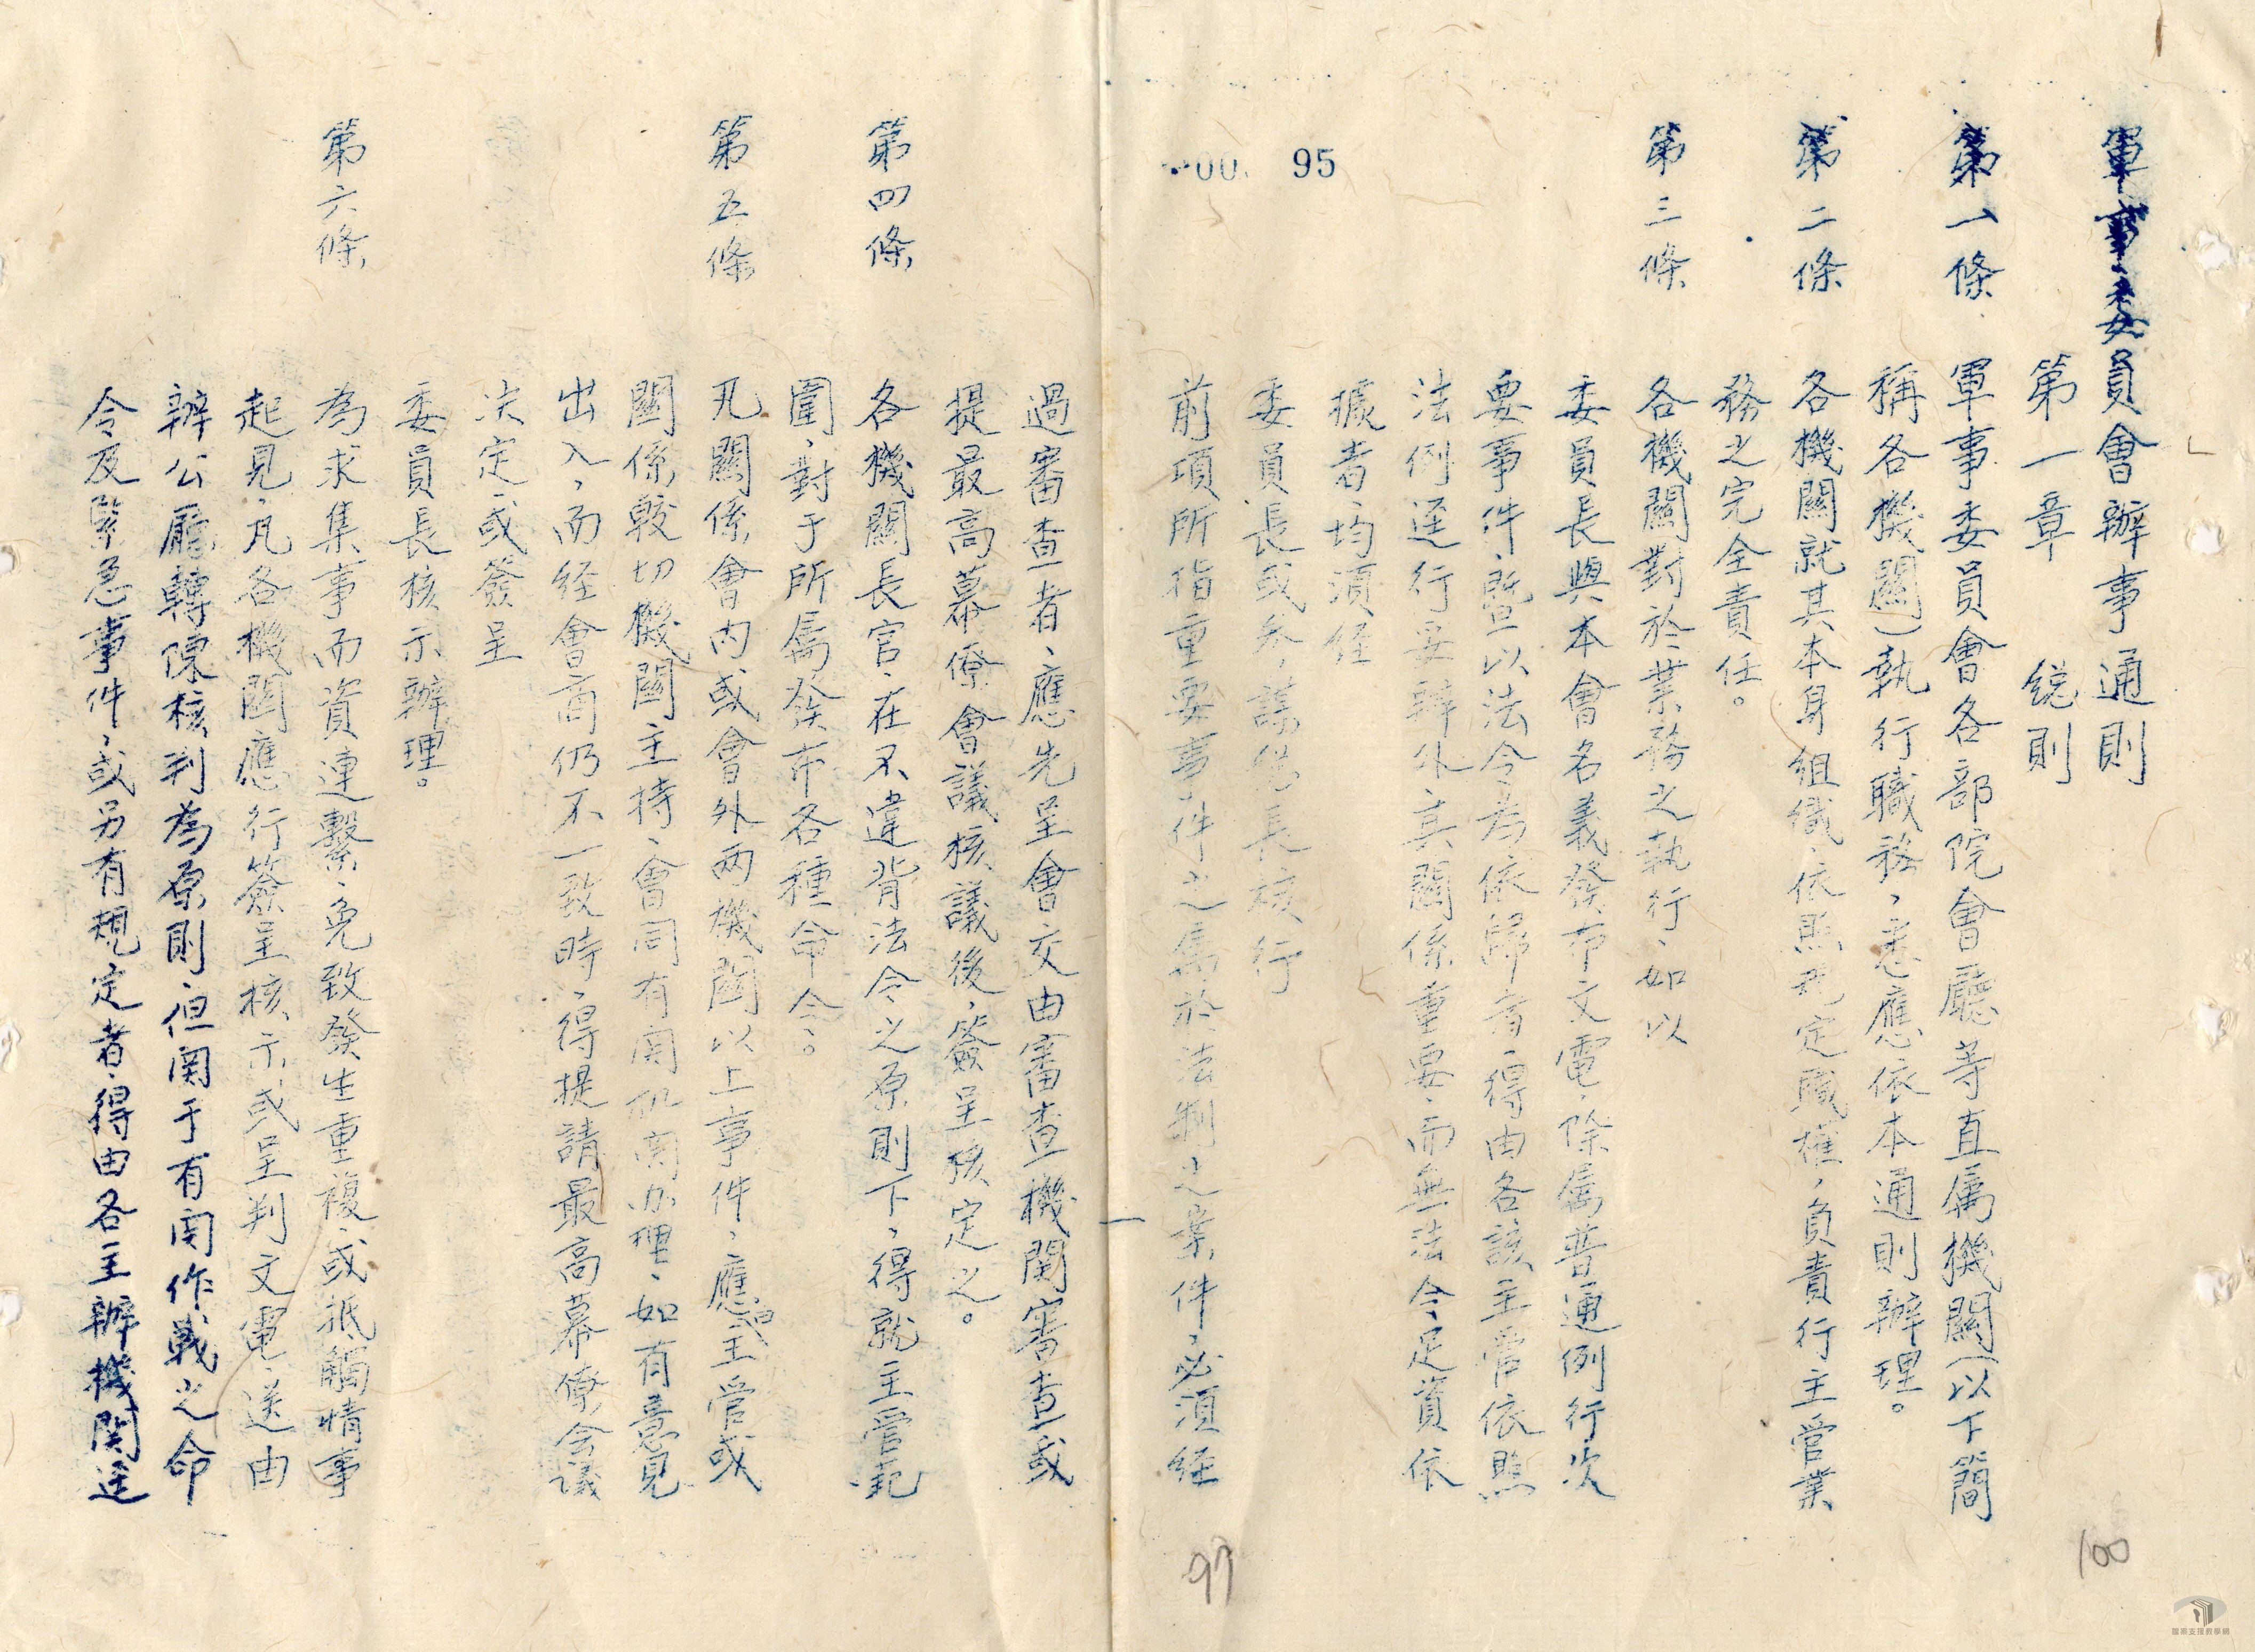 軍事委員會辦事通則
第一章　總則
第一條　軍事委員會各部院會廳等直屬機關(以下簡
稱各機關)執行職務、悉應依本通則辦理。
第二條　各機關就其本身組織、依照規定職權、負責行主管業
務之完全責任。
第三條　各機關對於業務之執行、如以
委員長與本會名義發布文電、除屬普通例行次
要事件、暨以法令為依歸者、得由各該主管依照
法例逕行妥辦外、其關係重要、而無法令足資依
據者均須経
委員長或參謀總長核行
前項所指重要事件之屬於法制之業件、必須経
00 95
過審查者、應先呈會交由審查機関審查或
提最高幕僚會議核議後、簽呈核定之。
第四條　各機關長官、在不違背法令之原則下、得就主管範
圍、對于所属發布各種命令。
第五條　凡關係會內或會外兩機関以上事件、應由主管或
關係較切機関主持、會同有関机関办理、如有意見
出入、而経會商仍不一致時、得提請最高幕僚会议
决定或簽呈
委員長核示辦理。
第六條　為求集事而資連繫、免致發生重複、或抵觸情事
起見、凡各機関應行簽呈核示或呈判文電、送由
辦公廳轉陳核判為原則、但関于有関作戰之命
令及緊急事件、或另有規定者、得由各主辦機関逕
一
97
100
國家文理教學網